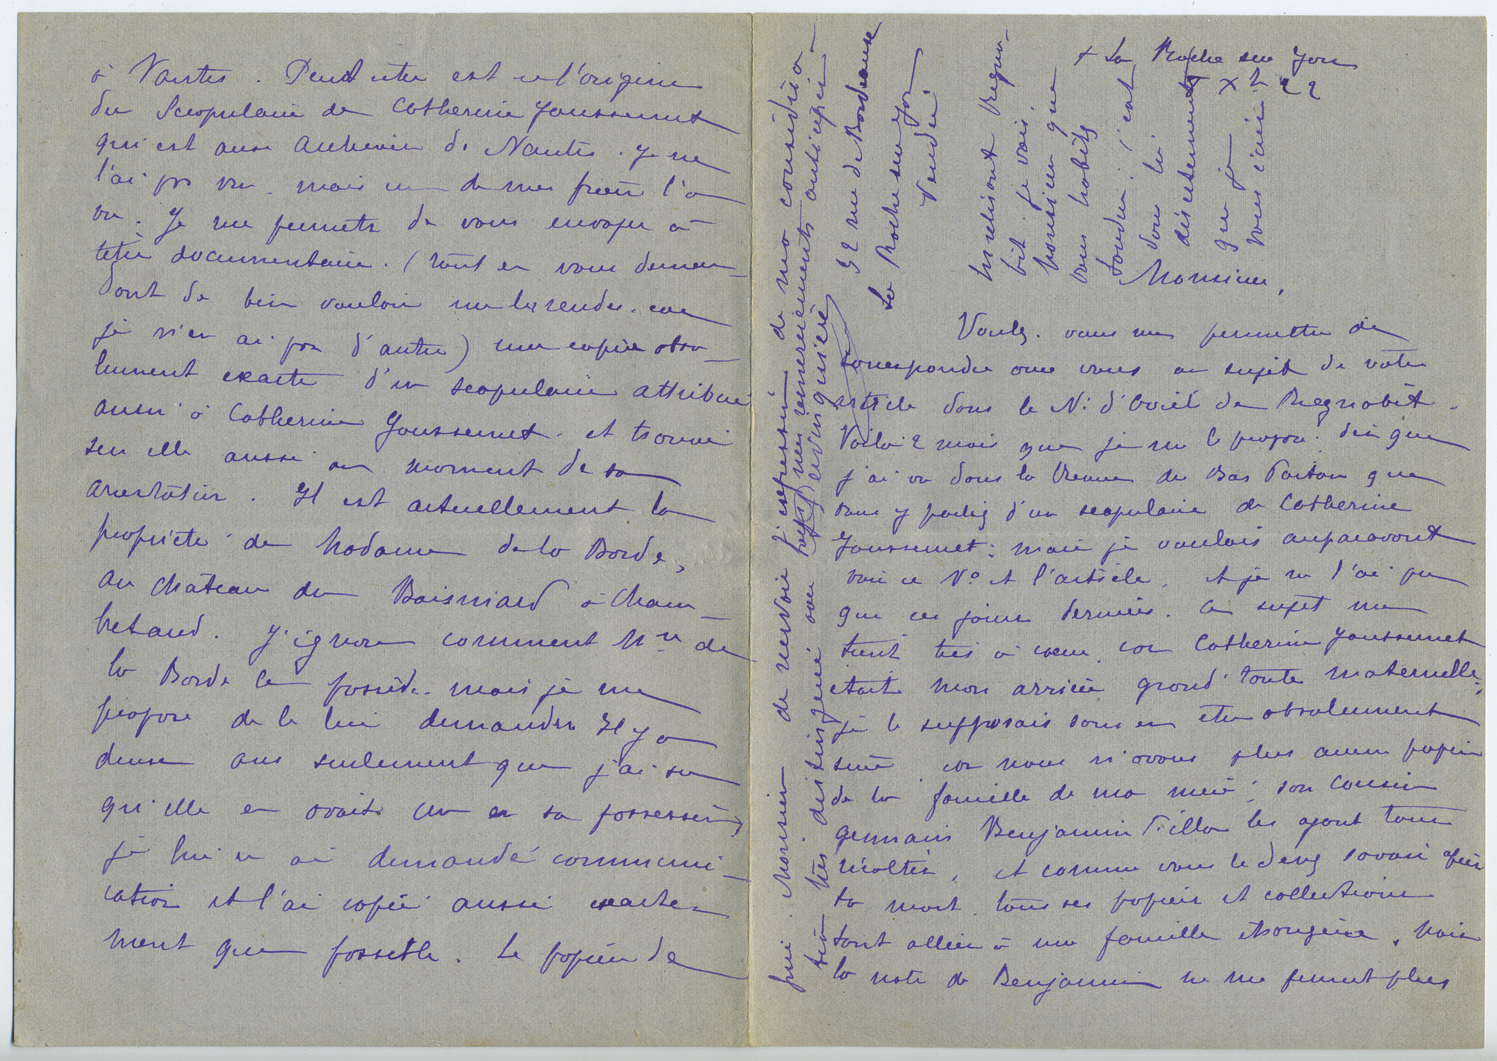 + La Roche sur Yon
X 22
Monsieur,
Voulez-vous me permettre de
correspondre avec vous au sujet de votre
article dans le N° d'avril de Regnabit.
Voilà 2 mois que je me le propose. dès que
j'ai vu dans la Revue du Bas Poitou que
vous y parliez d'un scapulaire de Catherine
Joussemet: mais je voulais auparavant
voir ce N° et l'article. et je ne l'ai pu
que ces jours derniers. Ce sujet me
tient très à coeur, car Catherine Joussemet
était mon arrière grand'tante maternelle;
je le supposais sans en être absolument
sûre car nous n'avons plus aucun papier
de la famille de ma mère; son cousin
germain Benjamin Fillon les ayant tous
récoltés, et comme vous le devez savoir après
sa mort, tous ses papiers et collections
sont allées à une famille étrangère. Mais
la note de Benjamin ne me permet plus
à Nantes. Peut être est ce l'origine
du Scapulaire de Catherine Joussemet
qui est aux Archives de Nantes. Je ne
l'ai pas vu. mais un de mes frères l'a
vu. Je me permets de vous envoyer à
titre documentaire. (tout en vous deman-
dant de bien vouloir me le rendre. car
je n'en ai pas d'autre) une copie abso-
lument exacte d'un scapulaire attribué
aussi à Catherine Joussemet. et trouvé
sur elle aussi au moment de sa
arrestation. Il est actuellement la
propriété de Madame de la Borde,
au château du Boisniard à Cham-
bretaud. J'ignore comment Mme de
la Borde le possède. mais je me
propose de le lui demander. Il y a
deux ans seulement que j'ai su
qu'elle en avait un en sa possession,
je lui en ai demandé communi-
cation et l'ai copié aussi exacte-
ment que possible. Le papier de
prie Monsieur de recevoir l'expression de ma considéra-
tion très distinguée avec mes remerciements anticipés
52 rue de Bordeaux
La Roche sur Yon
Vendée.
En relisant Regna-
bit. je vois
Monsieur que
vous habitez
Loudun: c'est
donc là
directement
que je
vous écris.